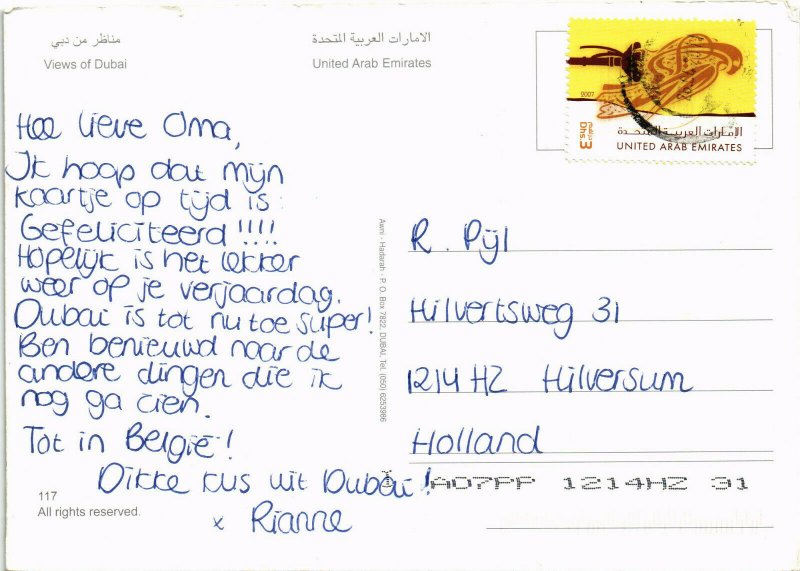 مناظر من دبي
Views of Dubai
الامارات العربية المتحدة
United Arab Emirates
2007
3 Dhs.
الإمارات العربية المتحدة
UNITED ARAB EMIRATES
Hee lieve Oma,
Ik hoop dat mijn
kaartje op tijd is:
Gefeliciteerd!!!!
Hopelijk is het lekker
weer op je verjaardag.
Dubai is tot nu toe super!
Ben benieuwd naar de
andere dingen die ik
nog ga zien.
Tot in België!
Dikke kus uit Dubai!
x Rianne
Awni - Hadarah - P. O. Box 7822, DUBAI, Tel. (050) 6253986
R. Pijl
Hilvertsweg 31
1214 HZ Hilversum
Holland
A07PP 1214HZ 31
117
All rights reserved.